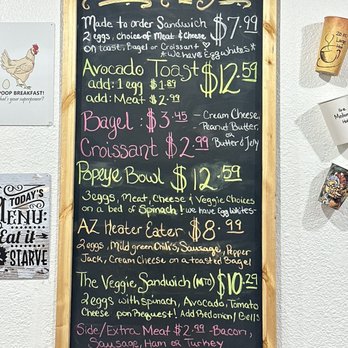 Made to order Sandwich $7.99
2 eggs, choice of Meat & Cheese
on toast, Bagel or Croissant
*We have Egg whites*
Avocado Toast $12.59
add: 1 egg $1.89
add: Meat $2.99
Bagel $3.45 - Cream Cheese,
Peanut Butter,
or
Butter & Jelly
Croissant $2.99
Popeye Bowl $12.59
3 eggs, Meat, Cheese & Veggie Choices
on a bed of Spinach! we have Egg Whites-
AZ Heater Eater $8.99
2 eggs, Mild green Chili's, Sausage, Pepper
Jack, Cream Cheese on a toasted Bagel
The Veggie Sandwich (MTO) $10.29
2 eggs with spinach, Avocado, Tomato
Cheese pon Request! Add Pedorion / Bells
Side/Extra Meat $2.99 - Bacon,
Sausage, Ham or Turkey
POOP BREAKFAST!
what's your superpower?
TODAY'S
MENU:
Eat it
STARVE